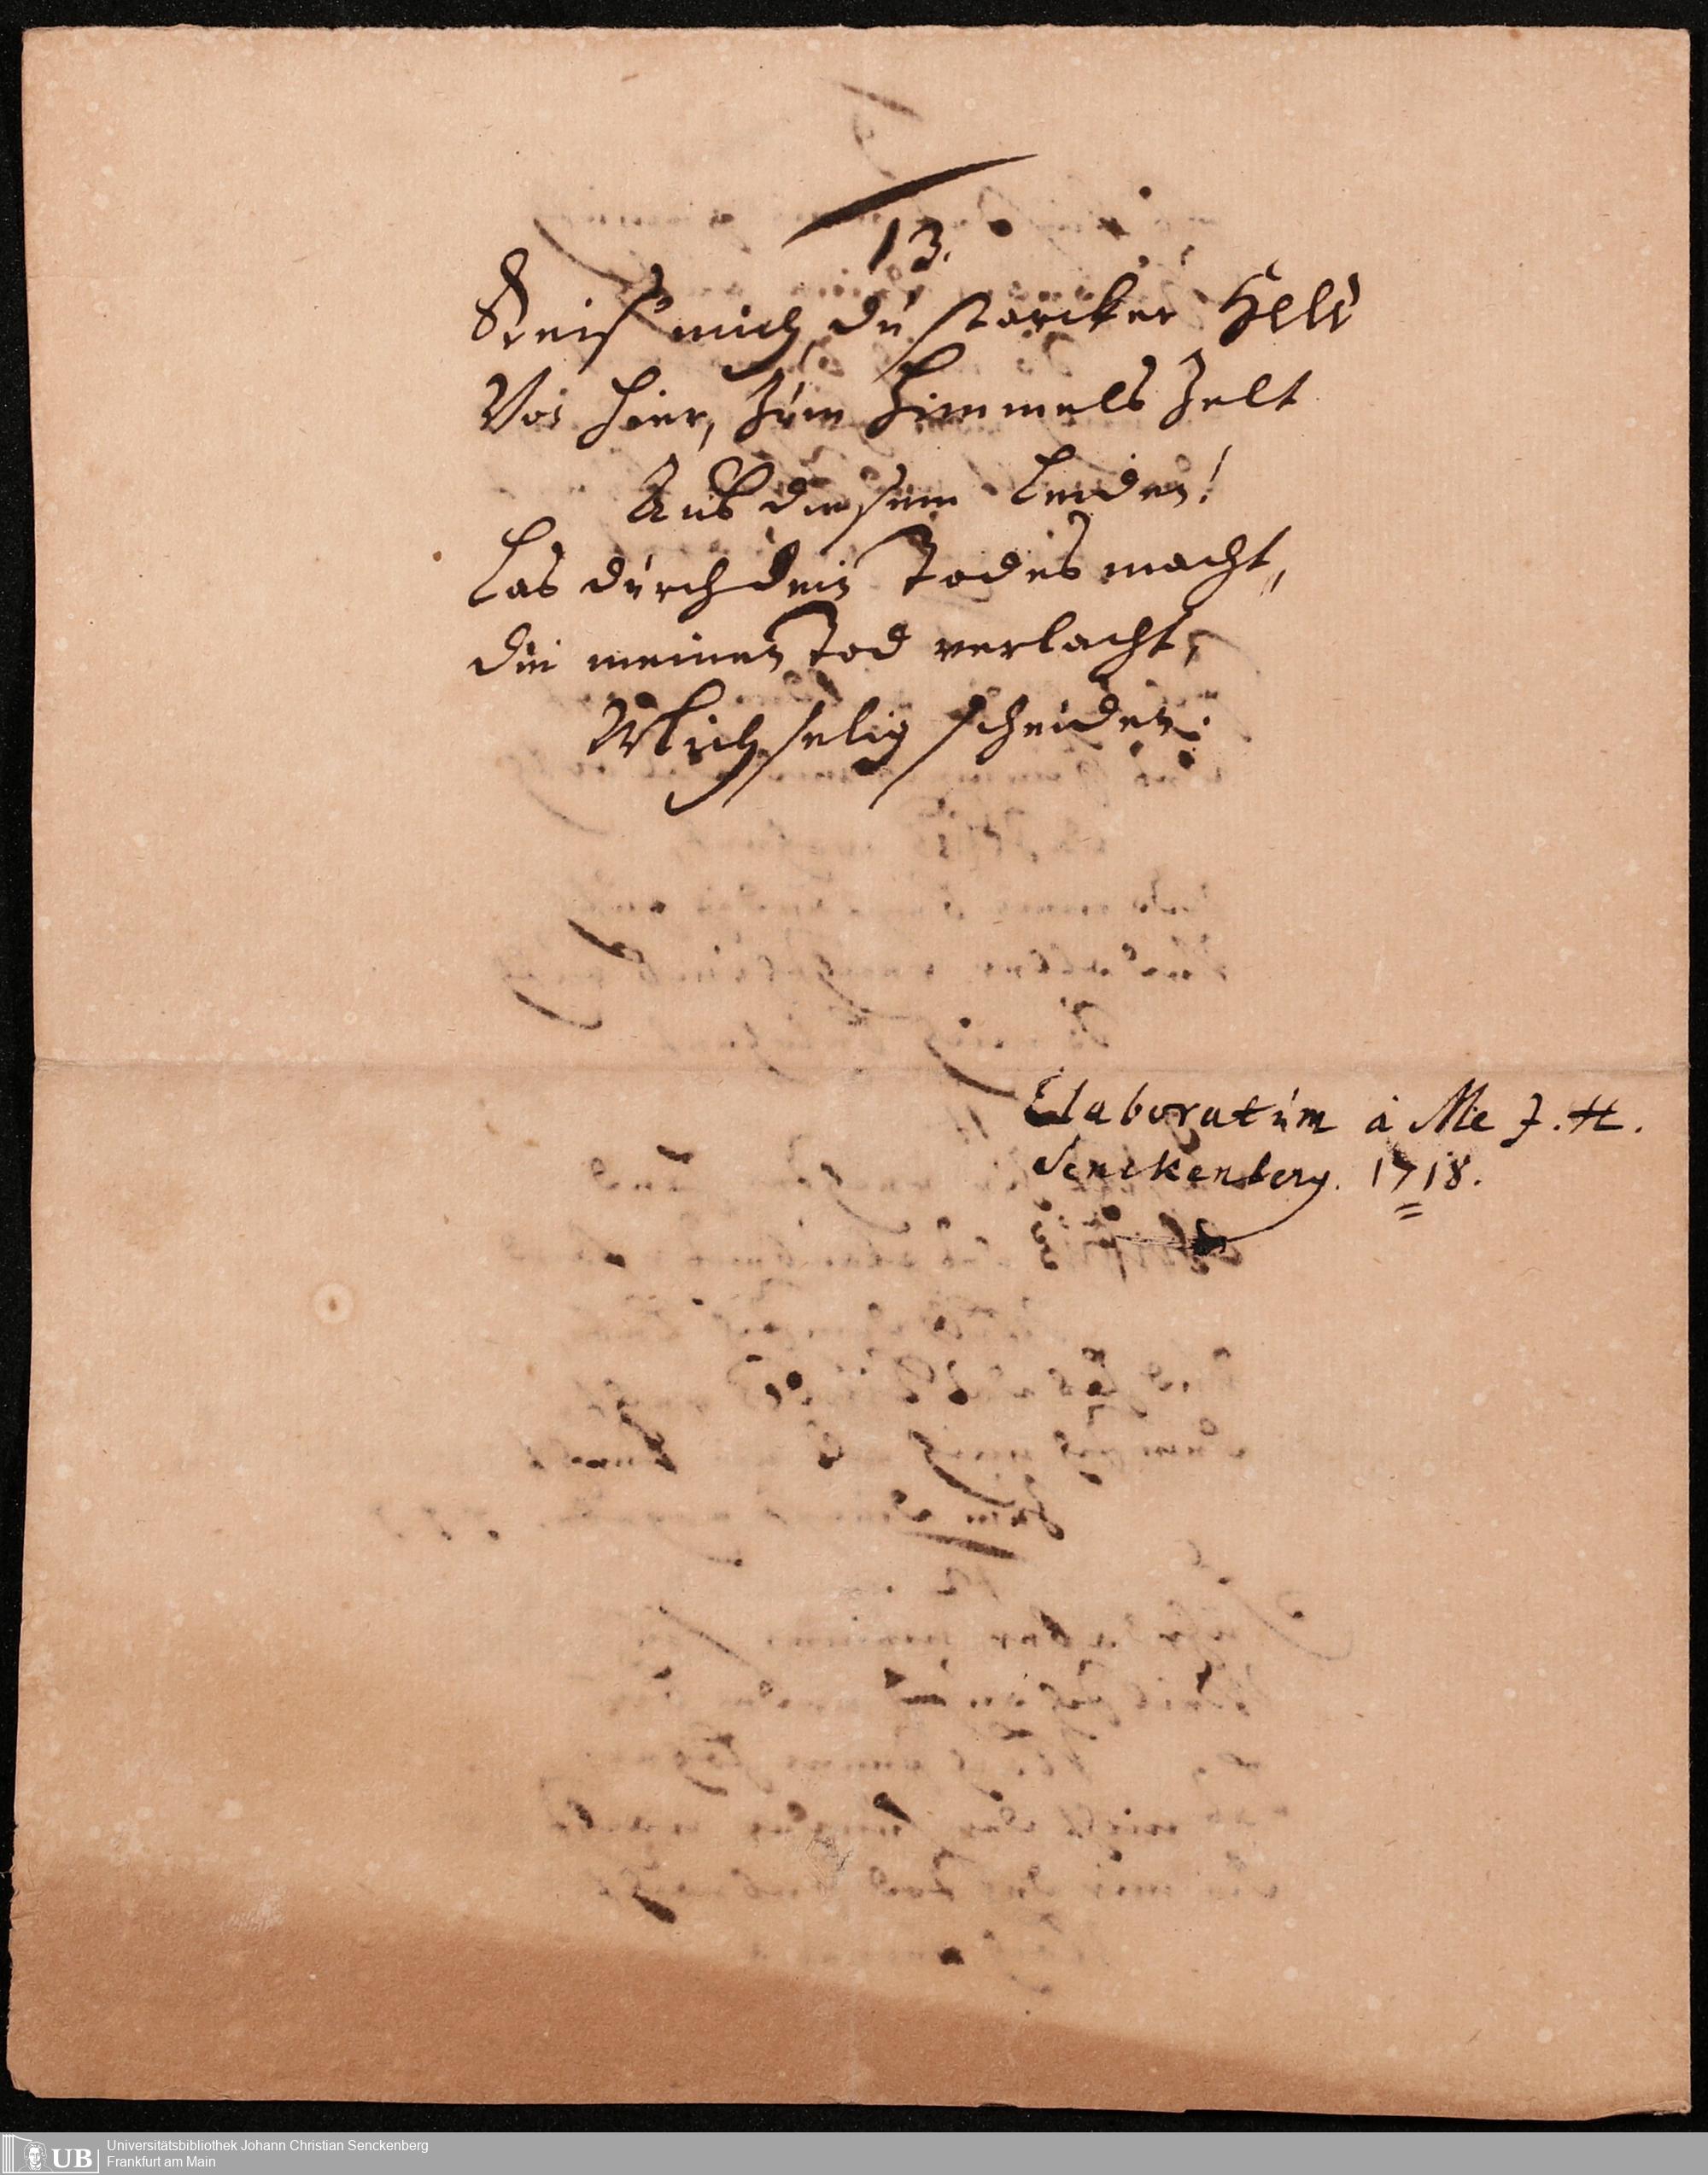 13.
Reiß mich, du starcker Held
Von hier, zum Himmels Zelt
Auß diesem Leiden!
Las durch dein Todes macht,
die meinen Tod verlacht,
Mich selig scheiden.
Elaboratum à Me J. H.
Senckenberg. 1718.
UB Universitätsbibliothek Johann Christian Senckenberg
Frankfurt am Main